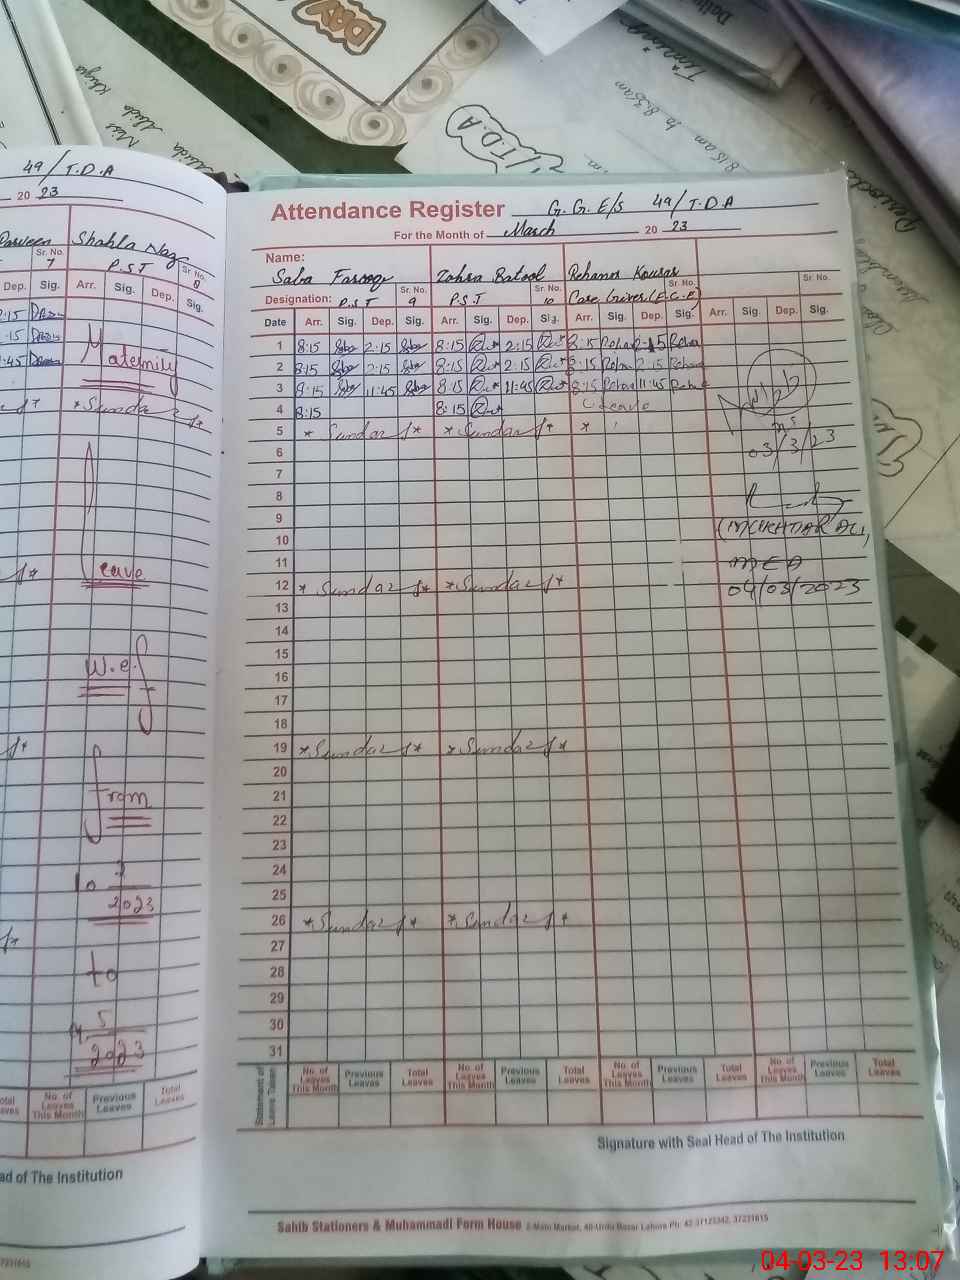 DAY
T.D.A
Timing
Daily
8:15 am to 8:35 am
Miss
Alida Khliya
49/T.D.A
20 23
Shahla Naz
Sr. No.
7
P.S.T
Sr. No.
8
Dep. Sig. Arr. Sig. Dep. Sig.
2:15
:15
:45
Maternity
*Sunday*
Leave
w.e.f
from
10 3
2023
to
5
2023
No. of Leaves This Month Previous Leaves Total Leaves
ad of The Institution
Attendance Register G.G.E/S 49/T.D.A
For the Month of March 20 23
Name: Saba Farooq Zohra Batool Rehana Kousar
Sr. No. Sr. No. Sr. No. Sr. No.
Designation: P.S.T 9 P.S.T 10 Care Giver (E.C.E)
Date Arr. Sig. Dep. Sig. Arr. Sig. Dep. Sig. Arr. Sig. Dep. Sig. Arr. Sig. Dep. Sig.
1 8:15 Saba 2:15 Saba 8:15 2:15 8:15 Reha 2:15 Reha
2 8:15 Saba 2:15 Saba 8:15 2:15 8:15 Reha 2:15 Reha
3 8:15 Saba 11:45 Saba 8:15 11:45 8:15 Reha 11:45 Reha
4 8:15 8:15 Leave
5 *Sunday* *Sunday* *
03/3/23
6
7
8
9
(MUKHTAR ALI)
10
11
MEA
12 *Sunday* *Sunday*
04/03/2023
13
14
15
16
17
18
19 *Sunday* *Sunday*
20
21
22
23
24
25
26 *Sunday* *Sunday*
27
28
29
30
31
Statement of Leave Taken No. of Leaves This Month Previous Leaves Total Leaves No. of Leaves This Month Previous Leaves Total Leaves No. of Leaves This Month Previous Leaves Total Leaves No. of Leaves This Month Previous Leaves Total Leaves
Signature with Seal Head of The Institution
Sahib Stationers & Muhammadi Form House 2-Main Market, 40-Urdu Bazar Lahore Ph: 42-37123342, 37231615
7231615
04-03-23 13:07